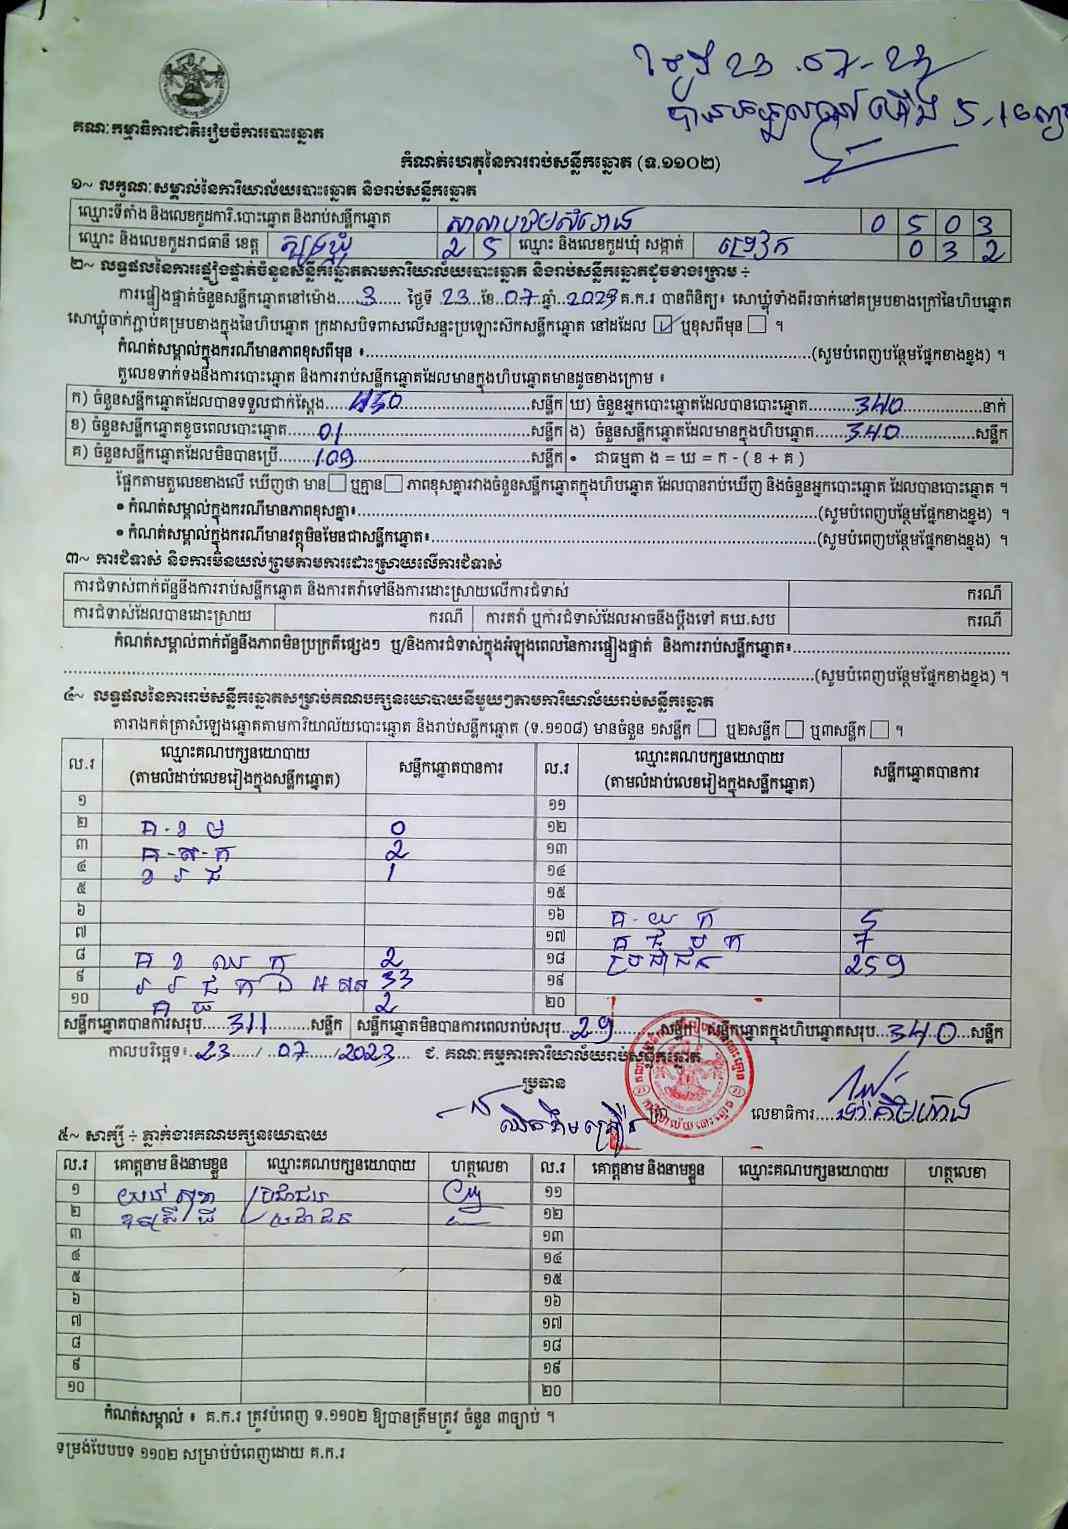 23.07.23
គណៈកម្មាធិការជាតិរៀបចំការបោះឆ្នោត
កំណត់ហេតុនៃការរាប់សន្លឹកឆ្នោត (ទ.១១០២)
១~ លក្ខណៈសម្គាល់នៃការិយាល័យបោះឆ្នោត និងរាប់សន្លឹកឆ្នោត
ឈ្មោះទីតាំង និងលេខកូដការិ.បោះឆ្នោត និងរាប់សន្លឹកឆ្នោត 0 5 0 3
ឈ្មោះ និងលេខកូដរាជធានី ខេត្ត ត្បូងឃ្មុំ 2 5 ឈ្មោះ និងលេខកូដឃុំ សង្កាត់ 0 3 2
២~ លទ្ធផលនៃការផ្ទៀងផ្ទាត់ចំនួនសន្លឹកឆ្នោតតាមការិយាល័យបោះឆ្នោត និងរាប់សន្លឹកឆ្នោតដូចខាងក្រោម ÷
ការផ្ទៀងផ្ទាត់ចំនួនសន្លឹកឆ្នោតនៅម៉ោង....3.... ថ្ងៃទី 23 ខែ 07 ឆ្នាំ 2023 គ.ក.រ បានពិនិត្យ៖ សោឃ្លុំទាំងពីរចាក់នៅគម្របខាងក្រៅនៃហិបឆ្នោត
សោឃ្លុំចាក់ភ្ជាប់គម្របខាងក្នុងនៃហិបឆ្នោត ក្រដាសបិទពាសលើសន្ទះប្រឡោះស៊កសន្លឹកឆ្នោត នៅដដែល ☑ ឬខុសពីមុន ☐ ។
កំណត់សម្គាល់ក្នុងករណីមានភាពខុសពីមុន ៖........(សូមបំពេញបន្ថែមផ្នែកខាងខ្នង) ។
តួលេខទាក់ទងនឹងការបោះឆ្នោត និងការរាប់សន្លឹកឆ្នោតដែលមានក្នុងហិបឆ្នោតមានដូចខាងក្រោម ៖
ក) ចំនួនសន្លឹកឆ្នោតដែលបានទទួលជាក់ស្តែង......450......សន្លឹក ឃ) ចំនួនអ្នកបោះឆ្នោតដែលបានបោះឆ្នោត......340......នាក់
ខ) ចំនួនសន្លឹកឆ្នោតខូចពេលបោះឆ្នោត......01......សន្លឹក ង) ចំនួនសន្លឹកឆ្នោតដែលមានក្នុងហិបឆ្នោត......340......សន្លឹក
គ) ចំនួនសន្លឹកឆ្នោតដែលមិនបានប្រើ......109......សន្លឹក • ជាធម្មតា ង = ឃ = ក - ( ខ + គ )
ផ្អែកតាមតួលេខខាងលើ ឃើញថា មាន ☐ ឬគ្មាន ☐ ភាពខុសគ្នារវាងចំនួនសន្លឹកឆ្នោតក្នុងហិបឆ្នោត ដែលបានរាប់ឃើញ និងចំនួនអ្នកបោះឆ្នោត ដែលបានបោះឆ្នោត ។
• កំណត់សម្គាល់ក្នុងករណីមានភាពខុសគ្នា៖........(សូមបំពេញបន្ថែមផ្នែកខាងខ្នង) ។
• កំណត់សម្គាល់ក្នុងករណីមានវត្ថុមិនមែនជាសន្លឹកឆ្នោត៖........(សូមបំពេញបន្ថែមផ្នែកខាងខ្នង) ។
៣~ ការជំទាស់ និងការមិនយល់ព្រមតាមការដោះស្រាយលើការជំទាស់
ការជំទាស់ពាក់ព័ន្ធនឹងការរាប់សន្លឹកឆ្នោត និងការតវ៉ាទៅនឹងការដោះស្រាយលើការជំទាស់ ករណី
ការជំទាស់ដែលបានដោះស្រាយ ករណី ការតវ៉ា ឬការជំទាស់ដែលអាចនឹងប្តឹងទៅ គឃ.សប ករណី
កំណត់សម្គាល់ពាក់ព័ន្ធនឹងភាពមិនប្រក្រតីផ្សេងៗ ឬ/និងការជំទាស់ក្នុងអំឡុងពេលនៃការផ្ទៀងផ្ទាត់ និងការរាប់សន្លឹកឆ្នោត៖........
........(សូមបំពេញបន្ថែមផ្នែកខាងខ្នង) ។
៤~ លទ្ធផលនៃការរាប់សន្លឹកឆ្នោតសម្រាប់គណបក្សនយោបាយនីមួយៗតាមការិយាល័យរាប់សន្លឹកឆ្នោត
តារាងកត់ត្រាសំឡេងឆ្នោតតាមការិយាល័យបោះឆ្នោត និងរាប់សន្លឹកឆ្នោត (ទ.១១០៨) មានចំនួន ១សន្លឹក ☐ ឬ២សន្លឹក ☐ ឬ៣សន្លឹក ☐ ។
ល.រ ឈ្មោះគណបក្សនយោបាយ (តាមលំដាប់លេខរៀងក្នុងសន្លឹកឆ្នោត) សន្លឹកឆ្នោតបានការ ល.រ ឈ្មោះគណបក្សនយោបាយ (តាមលំដាប់លេខរៀងក្នុងសន្លឹកឆ្នោត) សន្លឹកឆ្នោតបានការ
១ ១១
២ គ.ខ ម 0 ១២
៣ គ-ស-ក 2 ១៣
៤ ខ រ ជ 1 ១៤
៥ ១៥
៦ ១៦ គ.យ ក 5
៧ ១៧ គ ជ ប ក 7
៨ គ ខ ឈ ក 2 ១៨ ប្រជាជន 259
៩ 33 ១៩
១០ គ ធ 2 ២០
សន្លឹកឆ្នោតបានការសរុប....311....សន្លឹក សន្លឹកឆ្នោតមិនបានការពេលរាប់សរុប..29....សន្លឹក សន្លឹកឆ្នោតក្នុងហិបឆ្នោតសរុប..340..សន្លឹក
កាលបរិច្ឆេទ៖..23..../..07..../2023... ជ. គណៈកម្មការការិយាល័យរាប់សន្លឹកឆ្នោត
ប្រធាន
លេខាធិការ....
៥~ សាក្សី ÷ ភ្នាក់ងារគណបក្សនយោបាយ
ល.រ គោត្តនាម និងនាមខ្លួន ឈ្មោះគណបក្សនយោបាយ ហត្ថលេខា ល.រ គោត្តនាម និងនាមខ្លួន ឈ្មោះគណបក្សនយោបាយ ហត្ថលេខា
១ ប្រជាជន ១១
២ ប្រជាជន ១២
៣ ១៣
៤ ១៤
៥ ១៥
៦ ១៦
៧ ១៧
៨ ១៨
៩ ១៩
១០ ២០
កំណត់សម្គាល់ ៖ គ.ក.រ ត្រូវបំពេញ ទ.១១០២ ឱ្យបានត្រឹមត្រូវ ចំនួន ៣ច្បាប់ ។
ទម្រង់បែបបទ ១១០២ សម្រាប់បំពេញដោយ គ.ក.រ